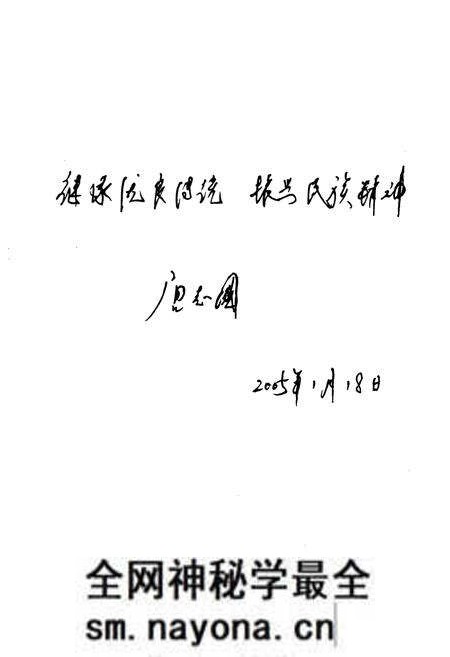 继承优良传统 振兴民族精神
志国
2005年1月18日
全网神秘学最全
sm.nayona.cn